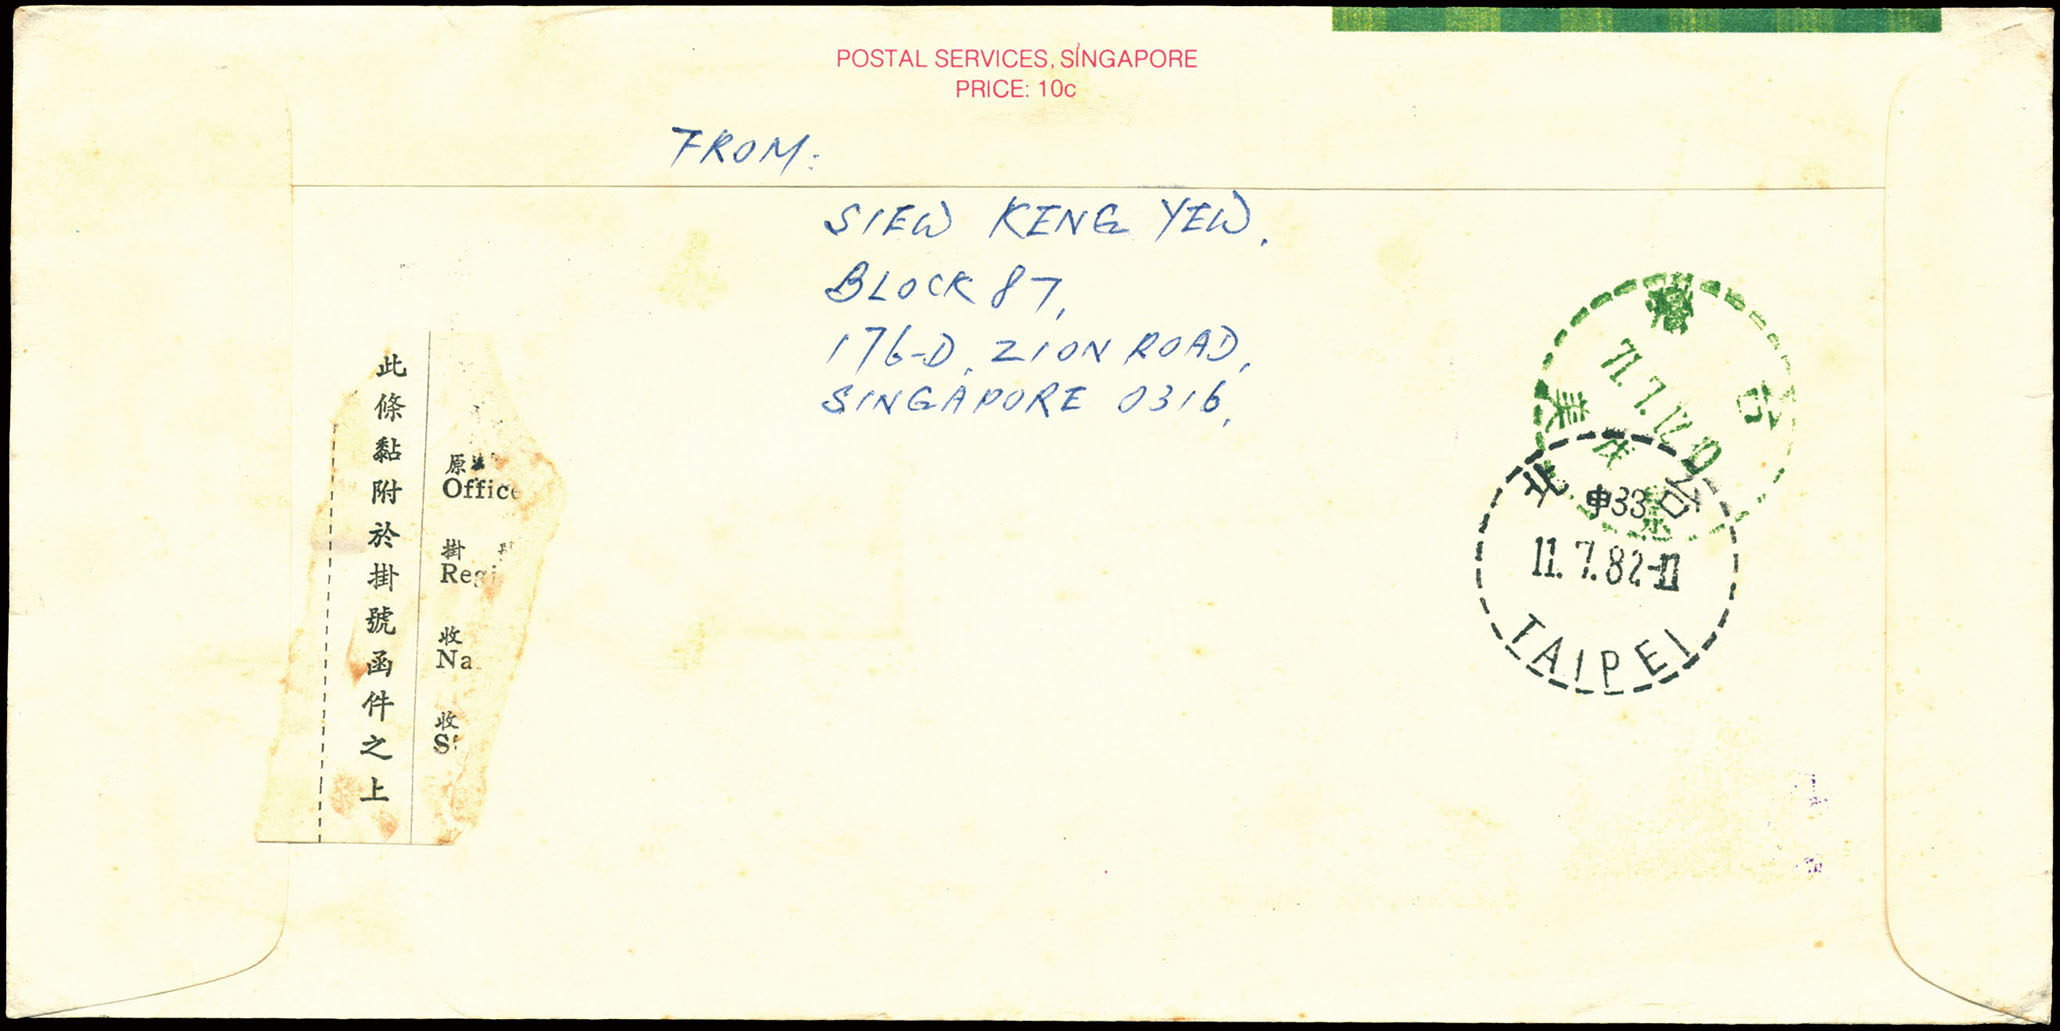 POSTAL SERVICES, SINGAPORE
PRICE: 10c
FROM:
SIEW KENG YEW.
BLOCK 87,
176-D, ZION ROAD,
SINGAPORE 0316.
此條黏附於掛號函件之上
原
Office
掛
Regi
收
Na
收
S
台
71.7.12
美
台北
申33
11.7.82
TAIPEI